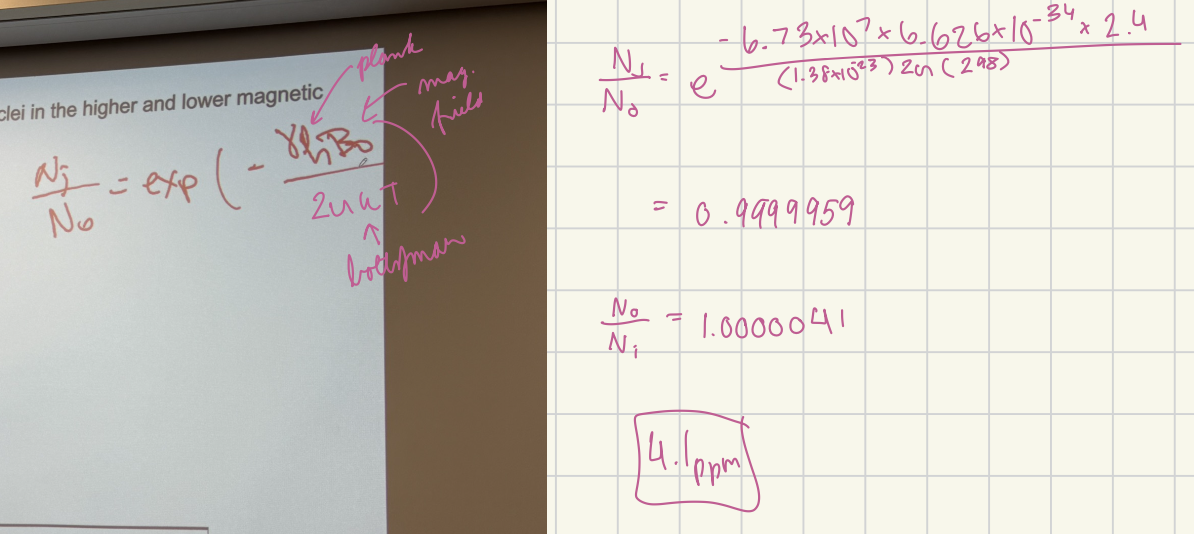 clei in the higher and lower magnetic
plank
mag.
field
Nj/N0 = exp ( - γhB0 / 2πkT
boltzman
N1/N0 = e^ -6.73×10^7 × 6.626×10^-34 × 2.4 / (1.38×10^-23) 2π (298)
= 0.9999959
N0/Ni = 1.0000041
4.1 ppm